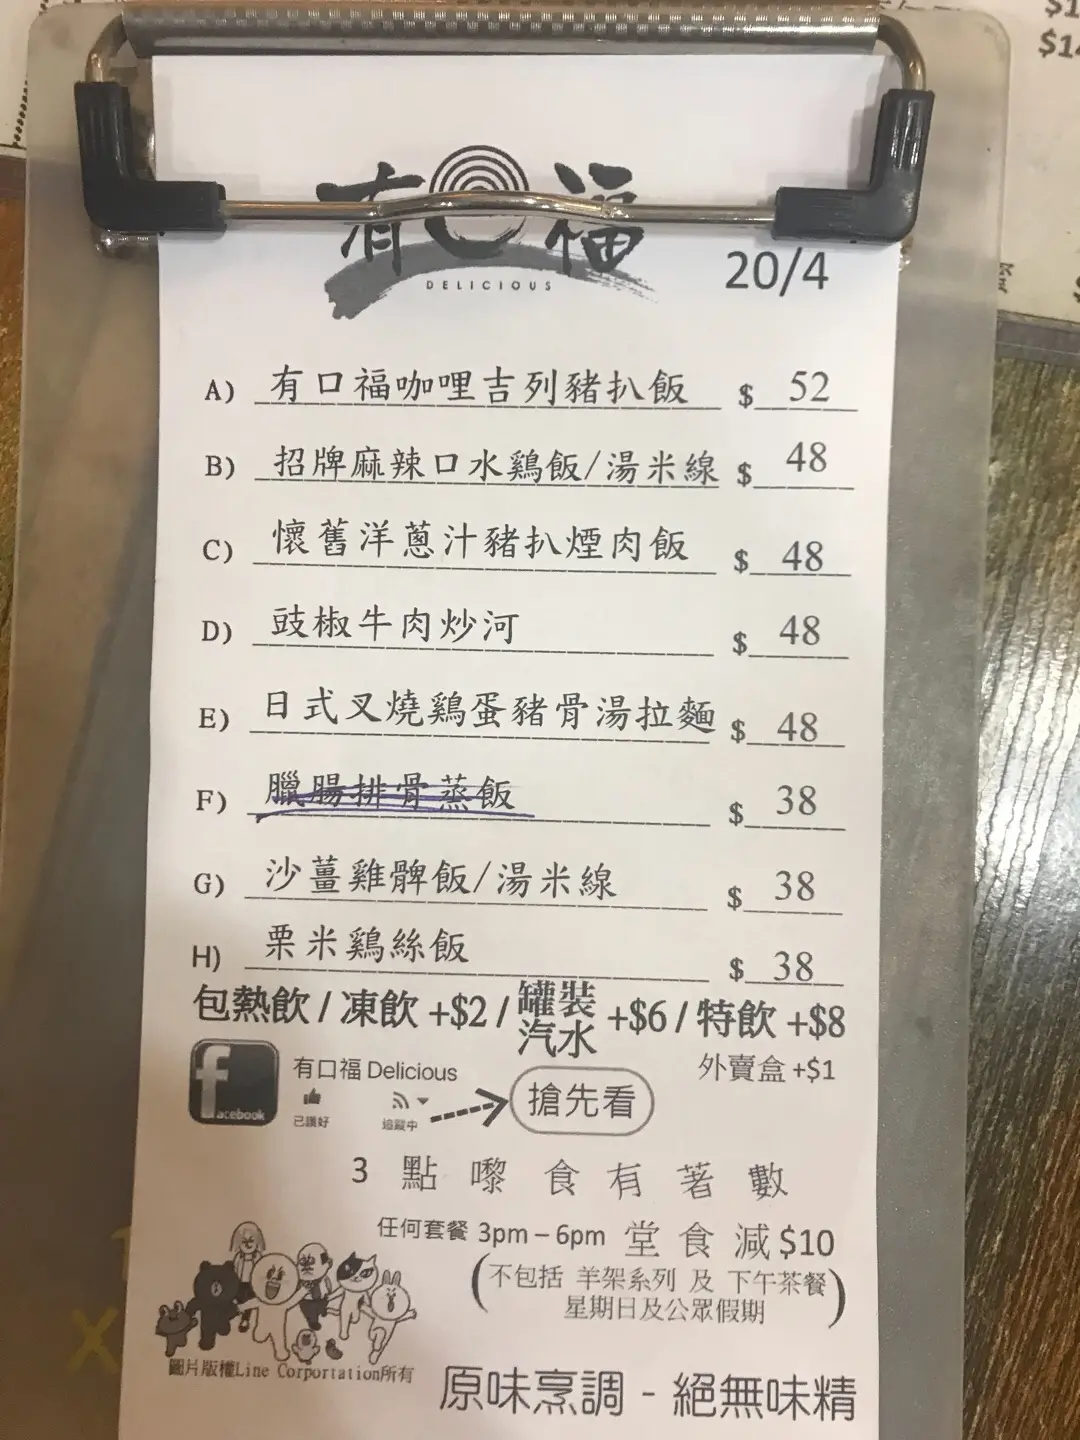 有口福
DELICIOUS
20/4
A) 有口福咖哩吉列豬扒飯 $ 52
B) 招牌麻辣口水鷄飯/湯米線 $ 48
C) 懷舊洋蔥汁豬扒煙肉飯 $ 48
D) 豉椒牛肉炒河 $ 48
E) 日式叉燒鷄蛋豬骨湯拉麵 $ 48
F) 臘腸排骨蒸飯 $ 38
G) 沙薑雞髀飯/湯米線 $ 38
H) 粟米鷄絲飯 $ 38
包熱飲 / 凍飲 +$2 / 罐裝汽水 +$6 / 特飲 +$8
外賣盒 +$1
facebook
有口福 Delicious
已讚好 追蹤中 搶先看
3 點 嚟 食 有 著 數
任何套餐 3pm – 6pm 堂 食 減 $10
(不包括 羊架系列 及 下午茶餐
星期日及公眾假期)
圖片版權Line Corportation所有
原味烹調 - 絕無味精